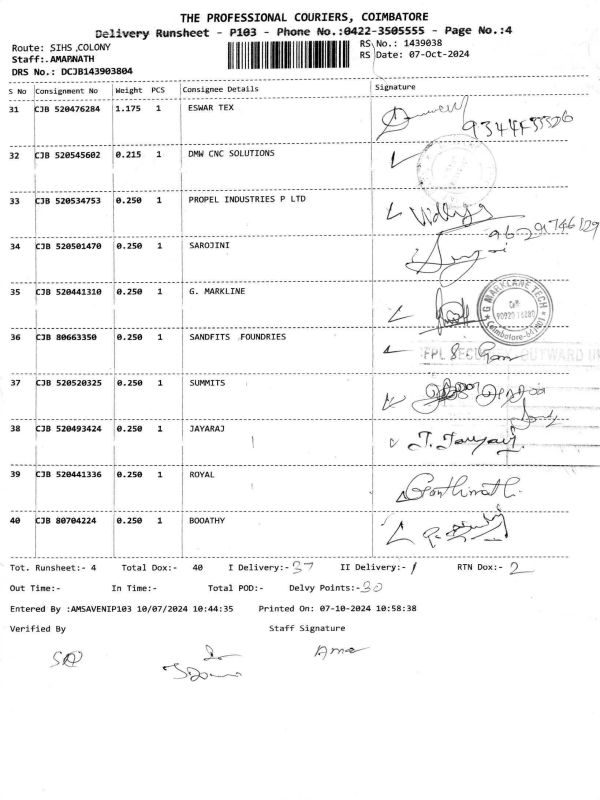 THE PROFESSIONAL COURIERS, COIMBATORE
Delivery Runsheet - P103 - Phone No.:0422-3505555 - Page No.:4
Route: SIHS ,COLONY RS No.: 1439038
Staff:.AMARNATH RS Date: 07-Oct-2024
DRS No.: DCJB143903804
S No Consignment No Weight PCS Consignee Details Signature
31 CJB 520476284 1.175 1 ESWAR TEX
32 CJB 520545602 0.215 1 DMW CNC SOLUTIONS
33 CJB 520534753 0.250 1 PROPEL INDUSTRIES P LTD Vidhya
34 CJB 520501470 0.250 1 SAROJINI
35 CJB 520441310 0.250 1 G. MARKLINE G MARKLANE TECH Coimbatore
36 CJB 80663350 0.250 1 SANDFITS FOUNDRIES
37 CJB 520520325 0.250 1 SUMMITS
38 CJB 520493424 0.250 1 JAYARAJ
39 CJB 520441336 0.250 1 ROYAL
40 CJB 80704224 0.250 1 BOOATHY
Tot. Runsheet:- 4 Total Dox:- 40 I Delivery:- 37 II Delivery:- 1 RTN Dox:- 2
Out Time:- In Time:- Total POD:- Delvy Points:- 30
Entered By :AMSAVENIP103 10/07/2024 10:44:35 Printed On: 07-10-2024 10:58:38
Verified By Staff Signature